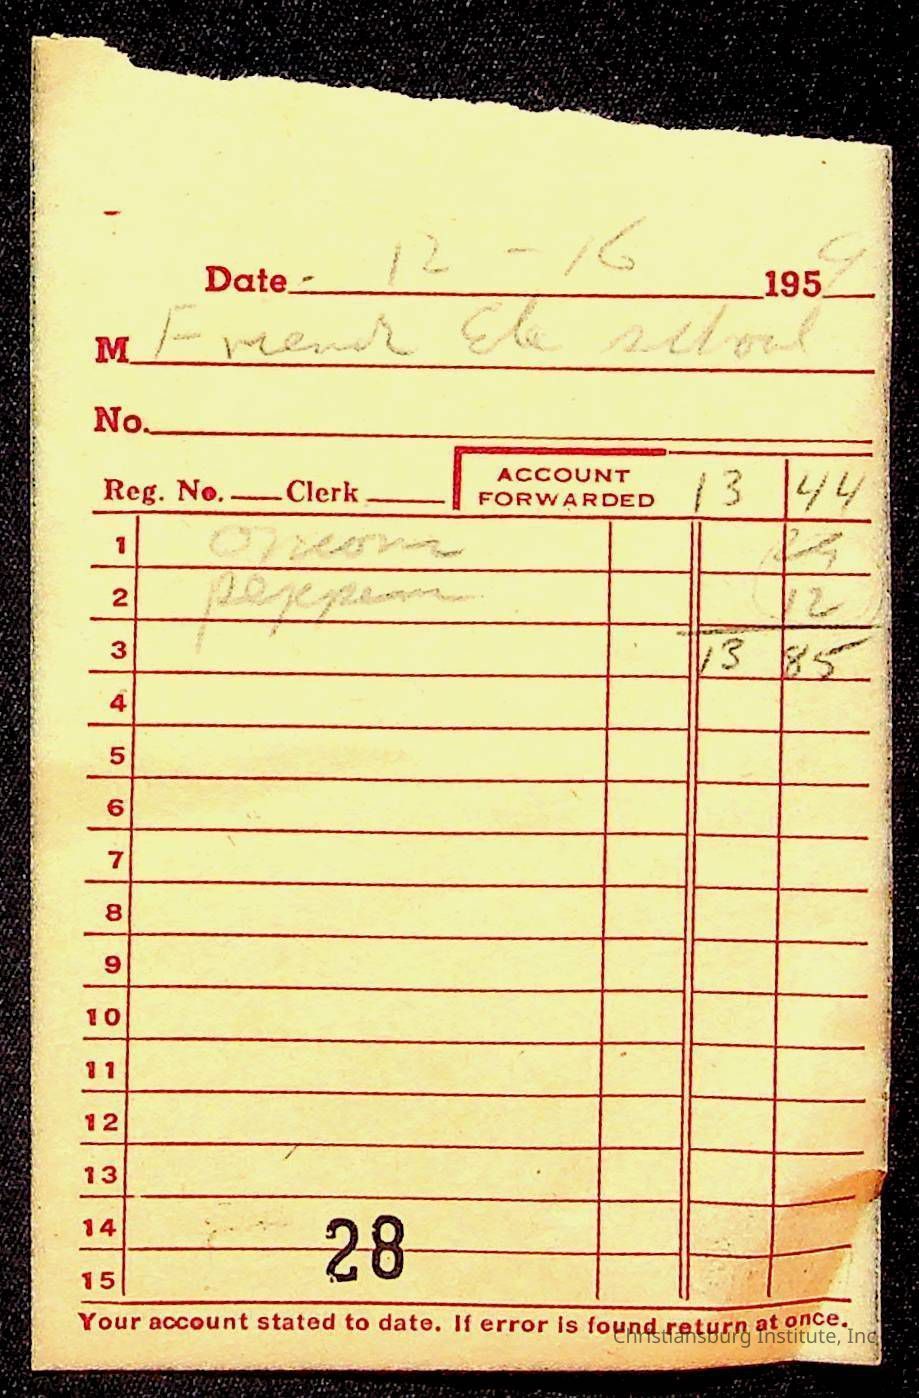 Date 12 - 16 1959
M Friends Ele school
No.
Reg. No. Clerk ACCOUNT FORWARDED 13 44
1 Onions 29
2 peppers 12
3 13 85
4
5
6
7
8
9
10
11
12
13
14
28
15
Your account stated to date. If error is found return at once.
Christiansburg Institute, Inc